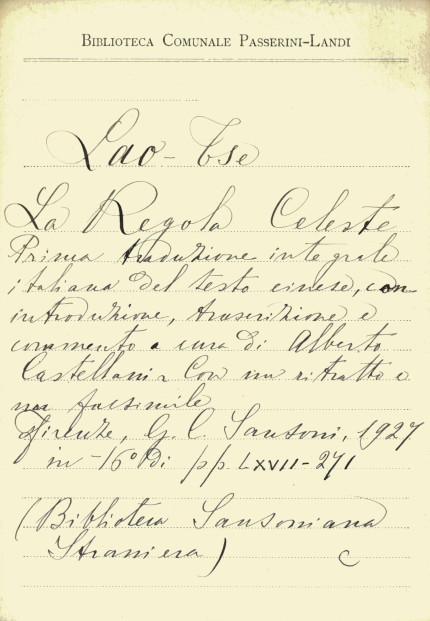 BIBLIOTECA COMUNALE PASSERINI-LANDI
Lao-Tse
La Regola Celeste
Prima traduzione integrale
italiana del testo cinese, con
introduzione, trascrizione e
commento a cura di Alberto
Castellani Con un ritratto e
un facsimile
Firenze, G. C. Sansoni, 1927
in -16° di pp. LXVII-271
(Biblioteca Sansoniana
Straniera) C